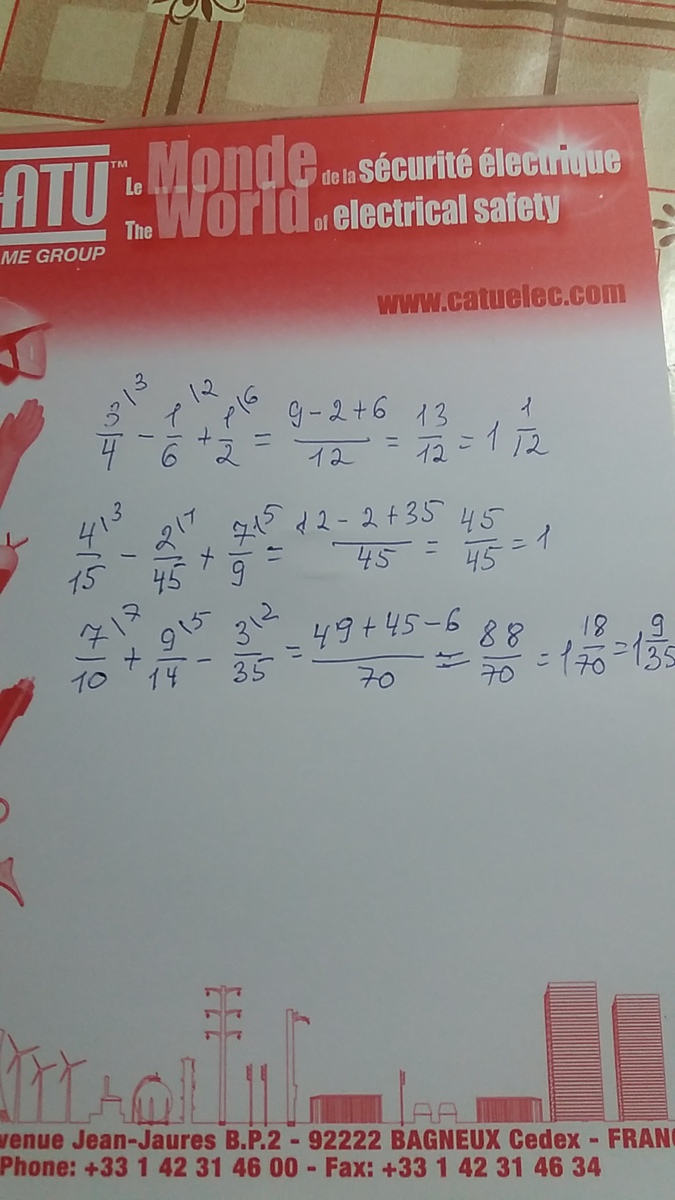 ATU™
ME GROUP
Le Monde de la sécurité électrique
The World of electrical safety
www.catuelec.com
3/4 \3 - 1/6 \2 + 1/2 \6 = (9-2+6)/12 = 13/12 = 1 1/12
4/15 \3 - 2/45 \1 + 7/9 \5 = (12-2+35)/45 = 45/45 = 1
7/10 \7 + 9/14 \5 - 3/35 \2 = (49+45-6)/70 = 88/70 = 1 18/70 = 1 9/35
venue Jean-Jaures B.P.2 - 92222 BAGNEUX Cedex - FRAN
Phone: +33 1 42 31 46 00 - Fax: +33 1 42 31 46 34